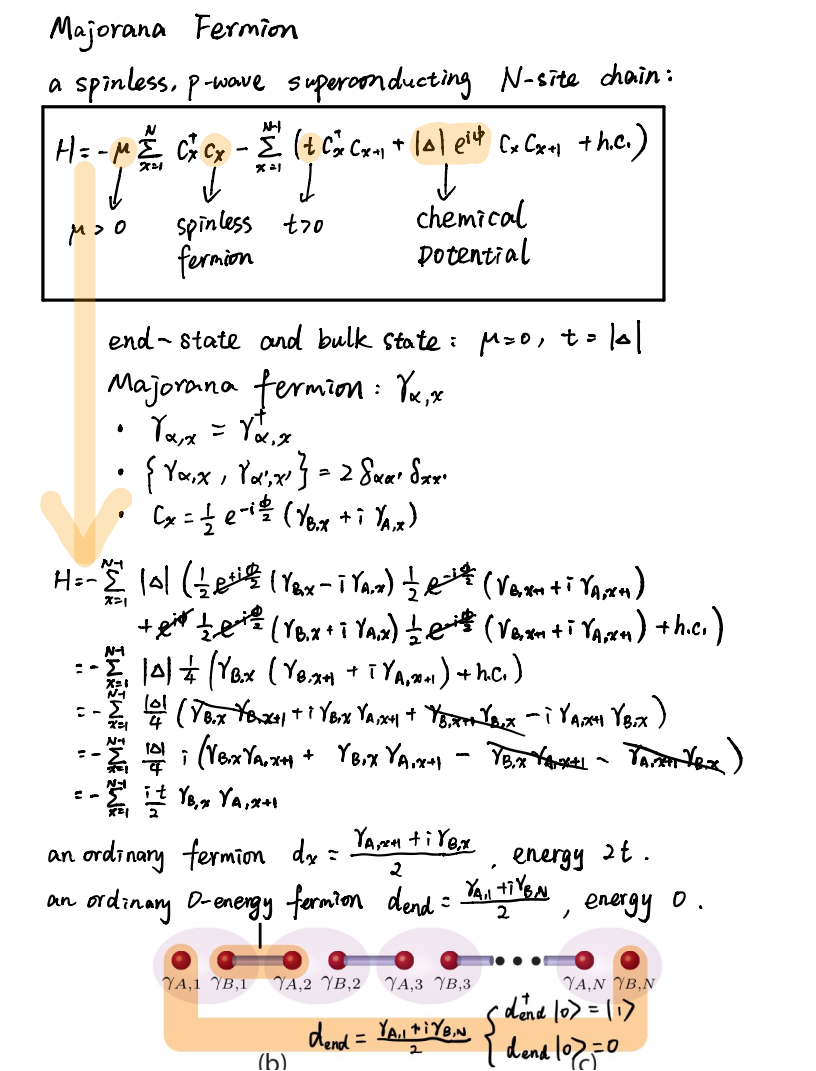 Majorana Fermion
a spinless, p-wave superconducting N-site chain:
H = -μ Σ_{x=1}^{N} C_x^† C_x - Σ_{x=1}^{N-1} (t C_x^† C_{x+1} + |Δ| e^{iϕ} C_x C_{x+1} + h.c.)
μ > 0 spinless fermion t>0 chemical potential
end-state and bulk state: μ=0, t = |Δ|
Majorana fermion: γ_{α,x}
• γ_{α,x} = γ_{α,x}^†
• {γ_{α,x}, γ_{α',x'}} = 2 δ_{αα'} δ_{xx'}
• C_x = 1/2 e^{-iϕ/2} (γ_{B,x} + i γ_{A,x})
H = - Σ_{x=1}^{N-1} |Δ| (1/2 e^{+iϕ/2} (γ_{B,x} - i γ_{A,x}) 1/2 e^{-iϕ/2} (γ_{B,x+1} + i γ_{A,x+1})
+ e^{iϕ} 1/2 e^{-iϕ/2} (γ_{B,x} + i γ_{A,x}) 1/2 e^{-iϕ/2} (γ_{B,x+1} + i γ_{A,x+1}) + h.c.)
= - Σ_{x=1}^{N-1} |Δ| 1/4 (γ_{B,x} (γ_{B,x+1} + i γ_{A,x+1}) + h.c.)
= - Σ_{x=1}^{N-1} |Δ|/4 (γ_{B,x} γ_{B,x+1} + i γ_{B,x} γ_{A,x+1} + γ_{B,x+1} γ_{B,x} - i γ_{A,x+1} γ_{B,x})
= - Σ_{x=1}^{N-1} |Δ|/4 i (γ_{B,x} γ_{A,x+1} + γ_{B,x} γ_{A,x+1} - γ_{B,x} γ_{A,x+1} - γ_{A,x+1} γ_{B,x})
= - Σ_{x=1}^{N-1} it/2 γ_{B,x} γ_{A,x+1}
an ordinary fermion d_x = (γ_{A,x+1} + i γ_{B,x})/2, energy 2t.
an ordinary 0-energy fermion d_end = (γ_{A,1} + i γ_{B,N})/2, energy 0.
γ_{A,1} γ_{B,1} γ_{A,2} γ_{B,2} γ_{A,3} γ_{B,3} γ_{A,N} γ_{B,N}
d_end = (γ_{A,1} + i γ_{B,N})/2 { d_end^† |0> = |1>
d_end |0> = 0
(b) (c)